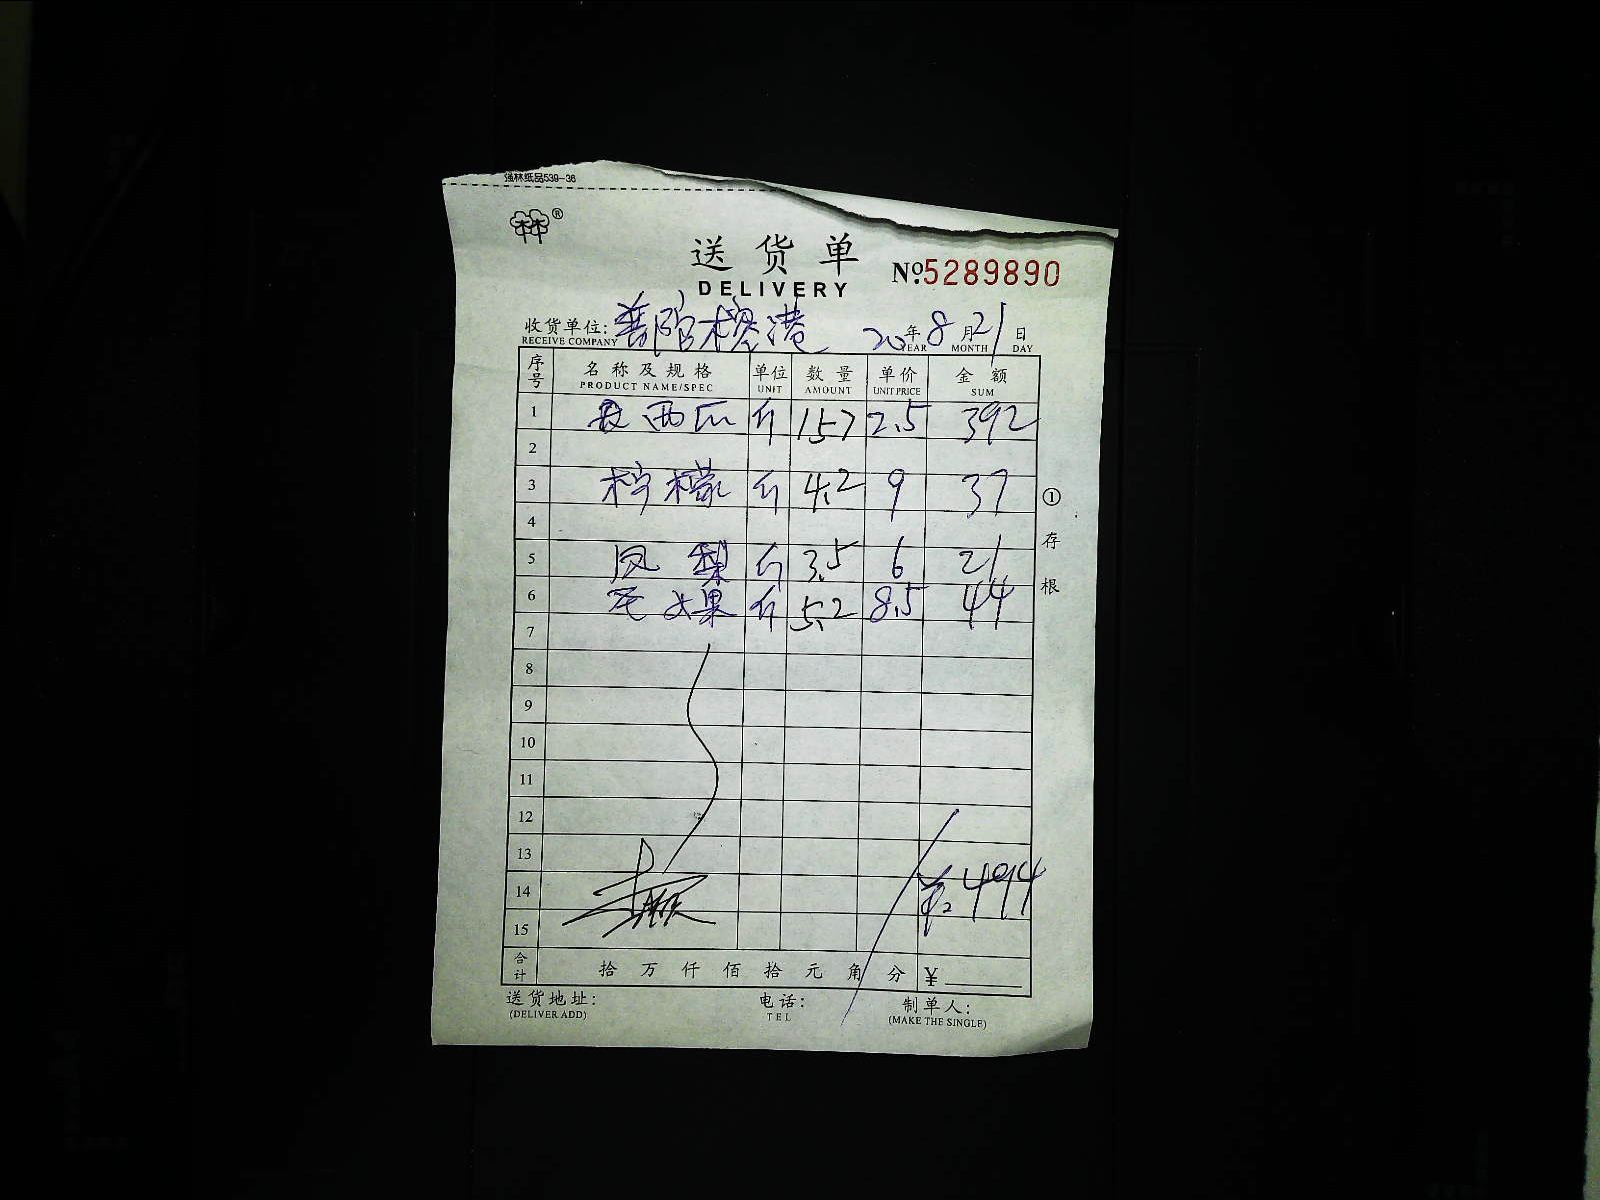 强林纸品539-36
®
送货单
DELIVERY
№5289890
收货单位: 普陀 港 20年8月21日
RECEIVE COMPANY YEAR MONTH DAY
序号 名称及规格 单位 数量 单价 金额
PRODUCT NAME/SPEC UNIT AMOUNT UNIT PRICE SUM
1 西瓜 斤 157 2.5 392
2
3 柠檬 斤 4.2 9 37
4
5 凤梨 斤 3.5 6 21
6 芒果 斤 5.2 8.5 44
7
8
9
10
11
12
13
14 494
15
合计 拾万仟佰拾元角分 ¥
①存根
送货地址: 电话: 制单人:
(DELIVER ADD) TEL (MAKE THE SINGLE)